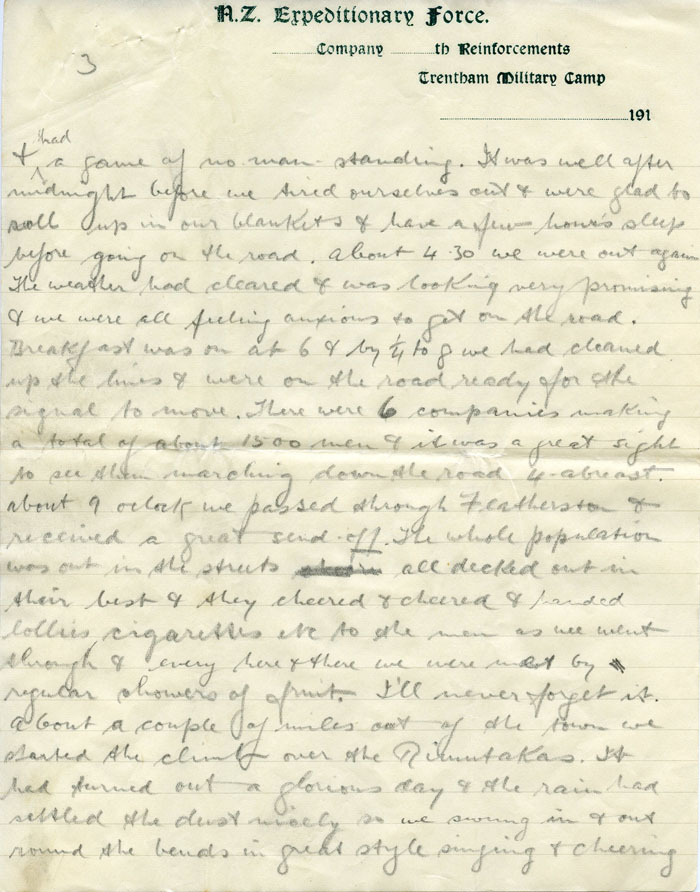 N.Z. Expeditionary Force.
Company th Reinforcements
Trentham Military Camp
191
3
had
& a game of no man standing. It was well after
midnight before we tired ourselves out & were glad to
roll up in our blankets & have a few hours sleep
before going on the road. About 4.30 we were out again
The weather had cleared & was looking very promising
& we were all feeling anxious to get on the road.
Breakfast was on at 6 & by ¼ to 8 we had cleaned
up the lines & were on the road ready for the
signal to move. There were 6 companies making
a total of about 1500 men & it was a great sight
to see them marching down the road 4 abreast.
about 9 oclock we passed through Featherston &
received a great send off. The whole population
was out in the streets all decked out in
their best & they cheered & cheered & handed
lollies, cigarettes etc to the men as we went
through & every here & there we were met by
regular showers of fruit. I'll never forget it.
About a couple of miles out of the town we
started the climb over the Rimutakas. It
had turned out a glorious day & the rain had
settled the dust nicely so we swung in & out
round the bends in great style singing & cheering